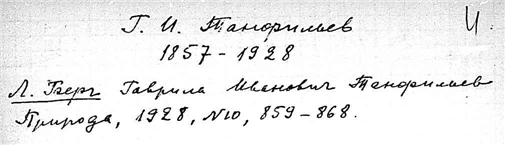 Г. И. Танфильев
И.
1857-1928
Л. Берг Гаврила Иванович Танфильев
Природа, 1928, №10, 859-868.